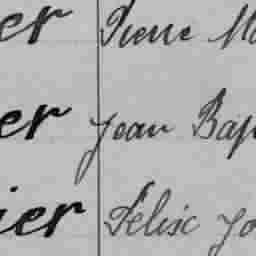 er Pierre Ma
er Jean Bap
ier Felix Jo